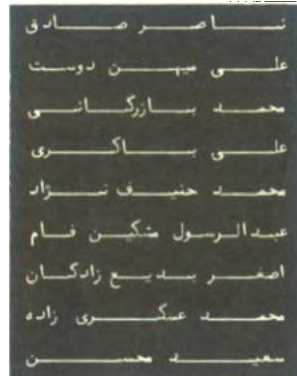 ناصر صادق
علی میهن دوست
محمد بازرگانی
علی باکری
محمد حنیف نژاد
عبدالرسول مشکین فام
اصغر بدیع زادگان
محمد عسکری زاده
سعید محسن